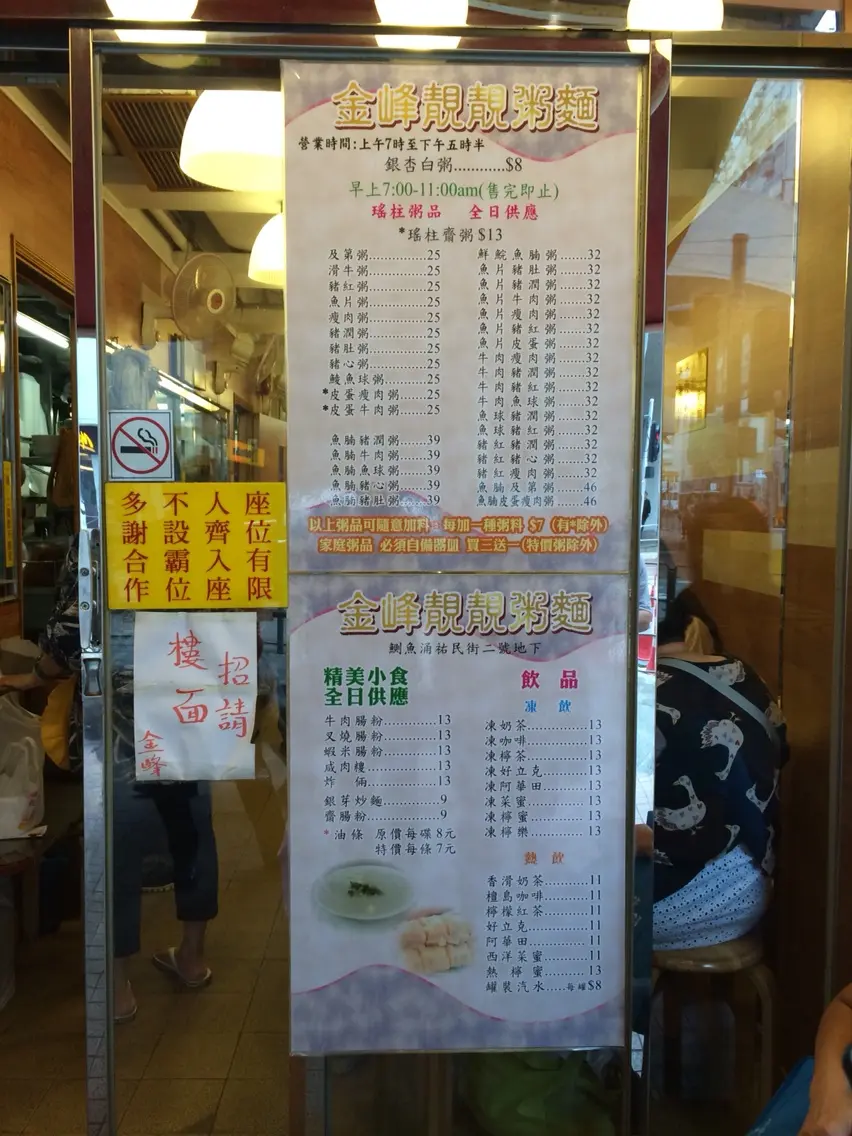 金峰靚靚粥麵
營業時間:上午7時至下午五時半
銀杏白粥............$8
早上7:00-11:00am(售完即止)
瑤柱粥品 全日供應
*瑤柱齋粥 $13
及第粥............25
滑牛粥............25
豬紅粥............25
魚片粥............25
瘦肉粥............25
豬潤粥............25
豬肚粥............25
豬心粥............25
鯪魚球粥.........25
*皮蛋瘦肉粥......25
*皮蛋牛肉粥......25
魚腩豬潤粥......39
魚腩牛肉粥......39
魚腩魚球粥......39
魚腩豬心粥......39
魚腩豬肚粥......39
鮮鯇魚腩粥.......32
魚片豬肚粥.......32
魚片豬潤粥.......32
魚片牛肉粥.......32
魚片瘦肉粥.......32
魚片豬紅粥.......32
魚片皮蛋粥.......32
牛肉瘦肉粥.......32
牛肉豬潤粥.......32
牛肉豬紅粥.......32
牛肉魚球粥.......32
魚球豬潤粥.......32
魚球豬紅粥.......32
豬紅豬潤粥.......32
豬紅豬心粥.......32
豬紅瘦肉粥.......32
魚腩及第粥.......46
魚腩皮蛋瘦肉粥.....46
以上粥品可隨意加料：每加一種粥料 $7 (有*除外)
家庭粥品 必須自備器皿 買三送一(特價粥除外)
多謝合作
不設霸位
人齊入座
座位有限
招請
樓面
金峰
金峰靚靚粥麵
鰂魚涌祐民街二號地下
精美小食
全日供應
牛肉腸粉............13
叉燒腸粉............13
蝦米腸粉............13
咸肉糉............13
炸 倆............13
銀芽炒麵............9
齋腸粉............9
*油條 原價每碟8元
特價每條7元
飲品
凍飲
凍奶茶............13
凍咖啡............13
凍檸茶............13
凍好立克............13
凍阿華田............13
凍菜蜜............13
凍檸蜜............13
凍檸樂............13
熱飲
香滑奶茶..........11
檀島咖啡..........11
檸檬紅茶..........11
好立克............11
阿華田............11
西洋菜蜜..........11
熱檸蜜............13
罐裝汽水.....每罐$8